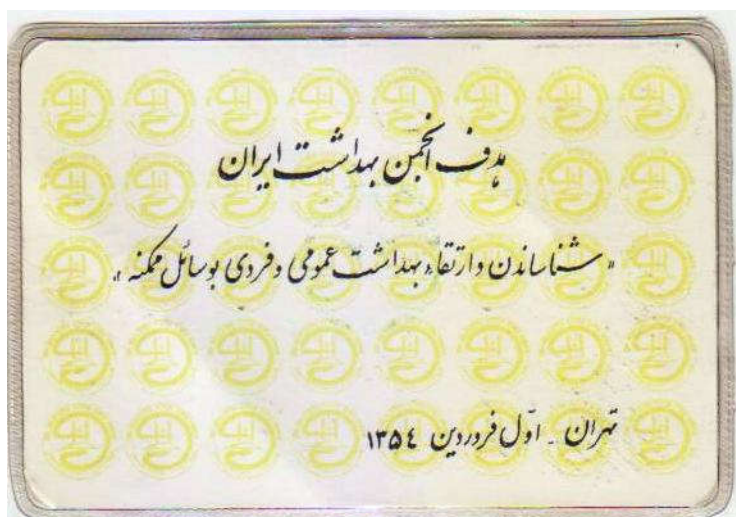 هدف انجمن بهداشت ایران
«شناساندن و ارتقاء بهداشت عمومی و فردی بوسائل ممکنه»
تهران - اوّل فروردین ۱۳۵٤